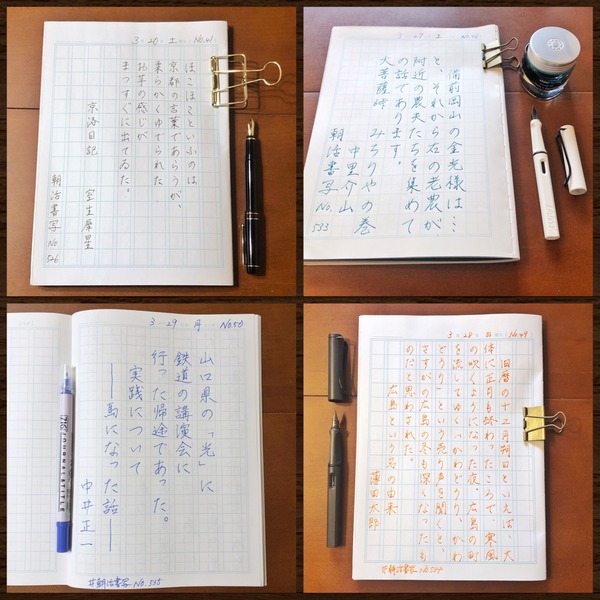 3 20 土 No.41
ほこほこといふのは
京都の言葉であらうが、
柔らかくゆでられた
お芋の感じが
まつすぐに出てゐた。
京洛日記 室生犀星
朝活書写 No.526
3 27 土 No.48
備前岡山の金光様は…
と、それから右の老農が、
附近の農夫たちを集めて
の話であります。
大菩薩峠
みちりやの巻
中里介山
朝活書写 No.533
3 29 月 No.50
山口県の「光」に
鉄道の講演会に
行った帰途であった。
実践について
――馬になった話――
中井正一
#朝活書写 No.535
3 28 日 No.49
旧暦の十二月朔日といえば、大
体に正月も終わったころで、寒風
の吹く夜、広島の町
を流してゆく
売り声を聞くと、
さすがの広島の冬も深くなったも
のだと思わされた。
広島という名の由来
薄田太郎
#朝活書写 No.534